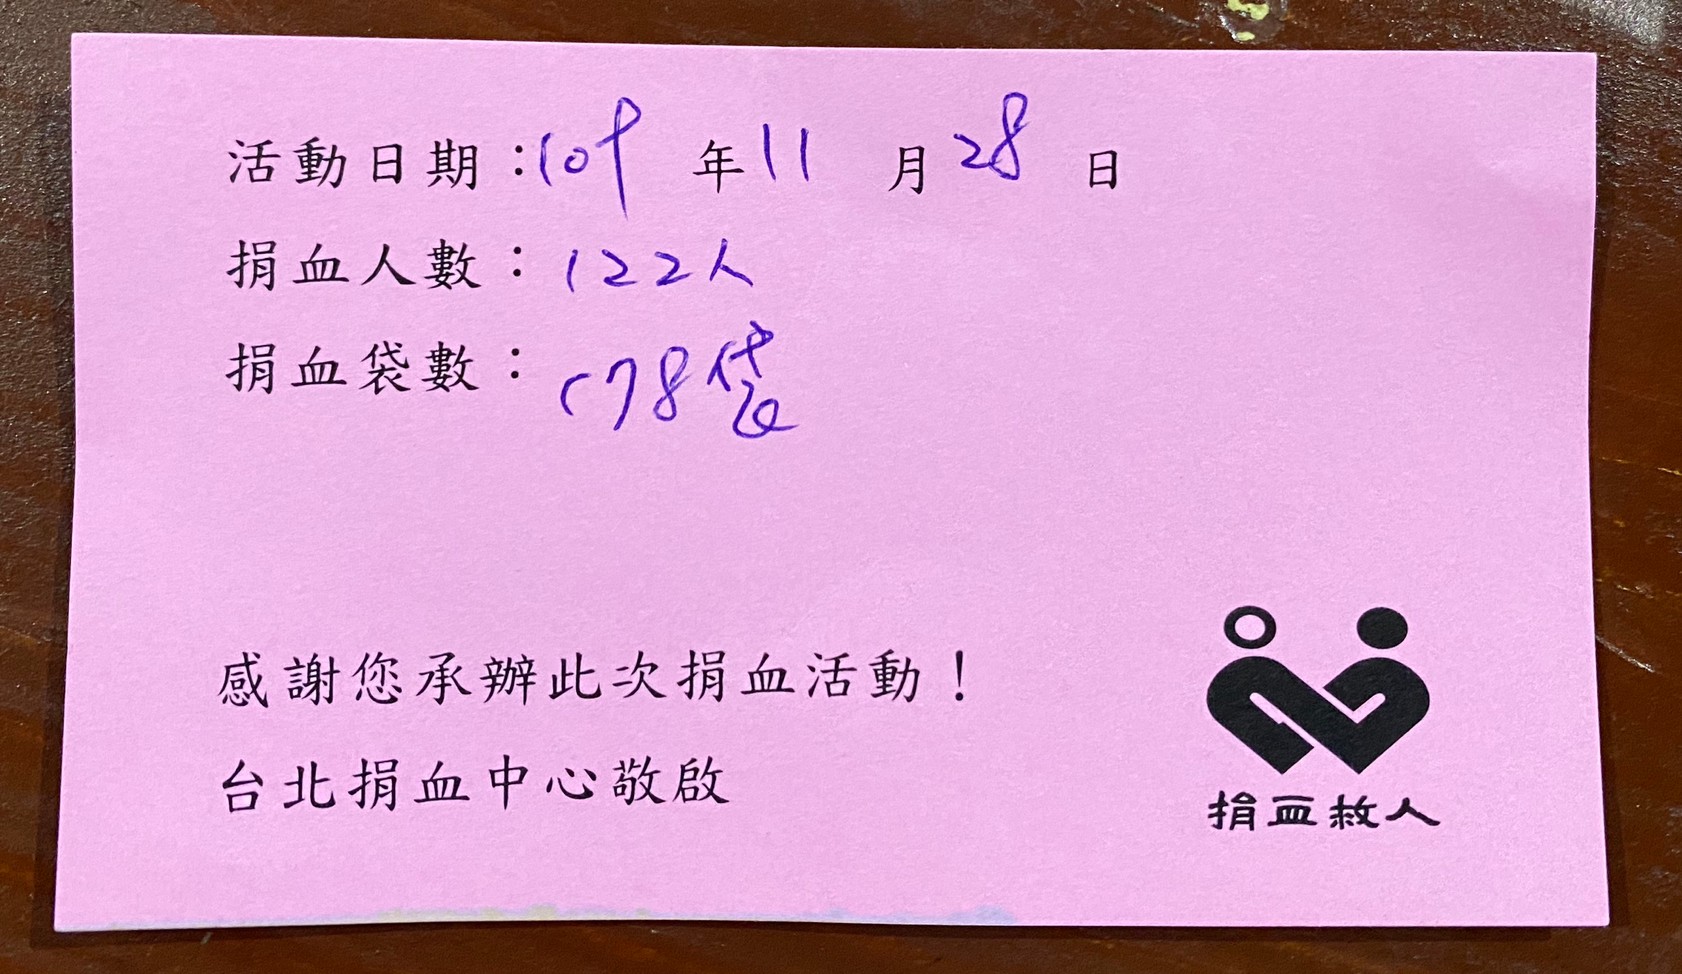 活動日期：109年11月28日
捐血人數：122人
捐血袋數：178袋
感謝您承辦此次捐血活動！
台北捐血中心敬啟
捐血救人